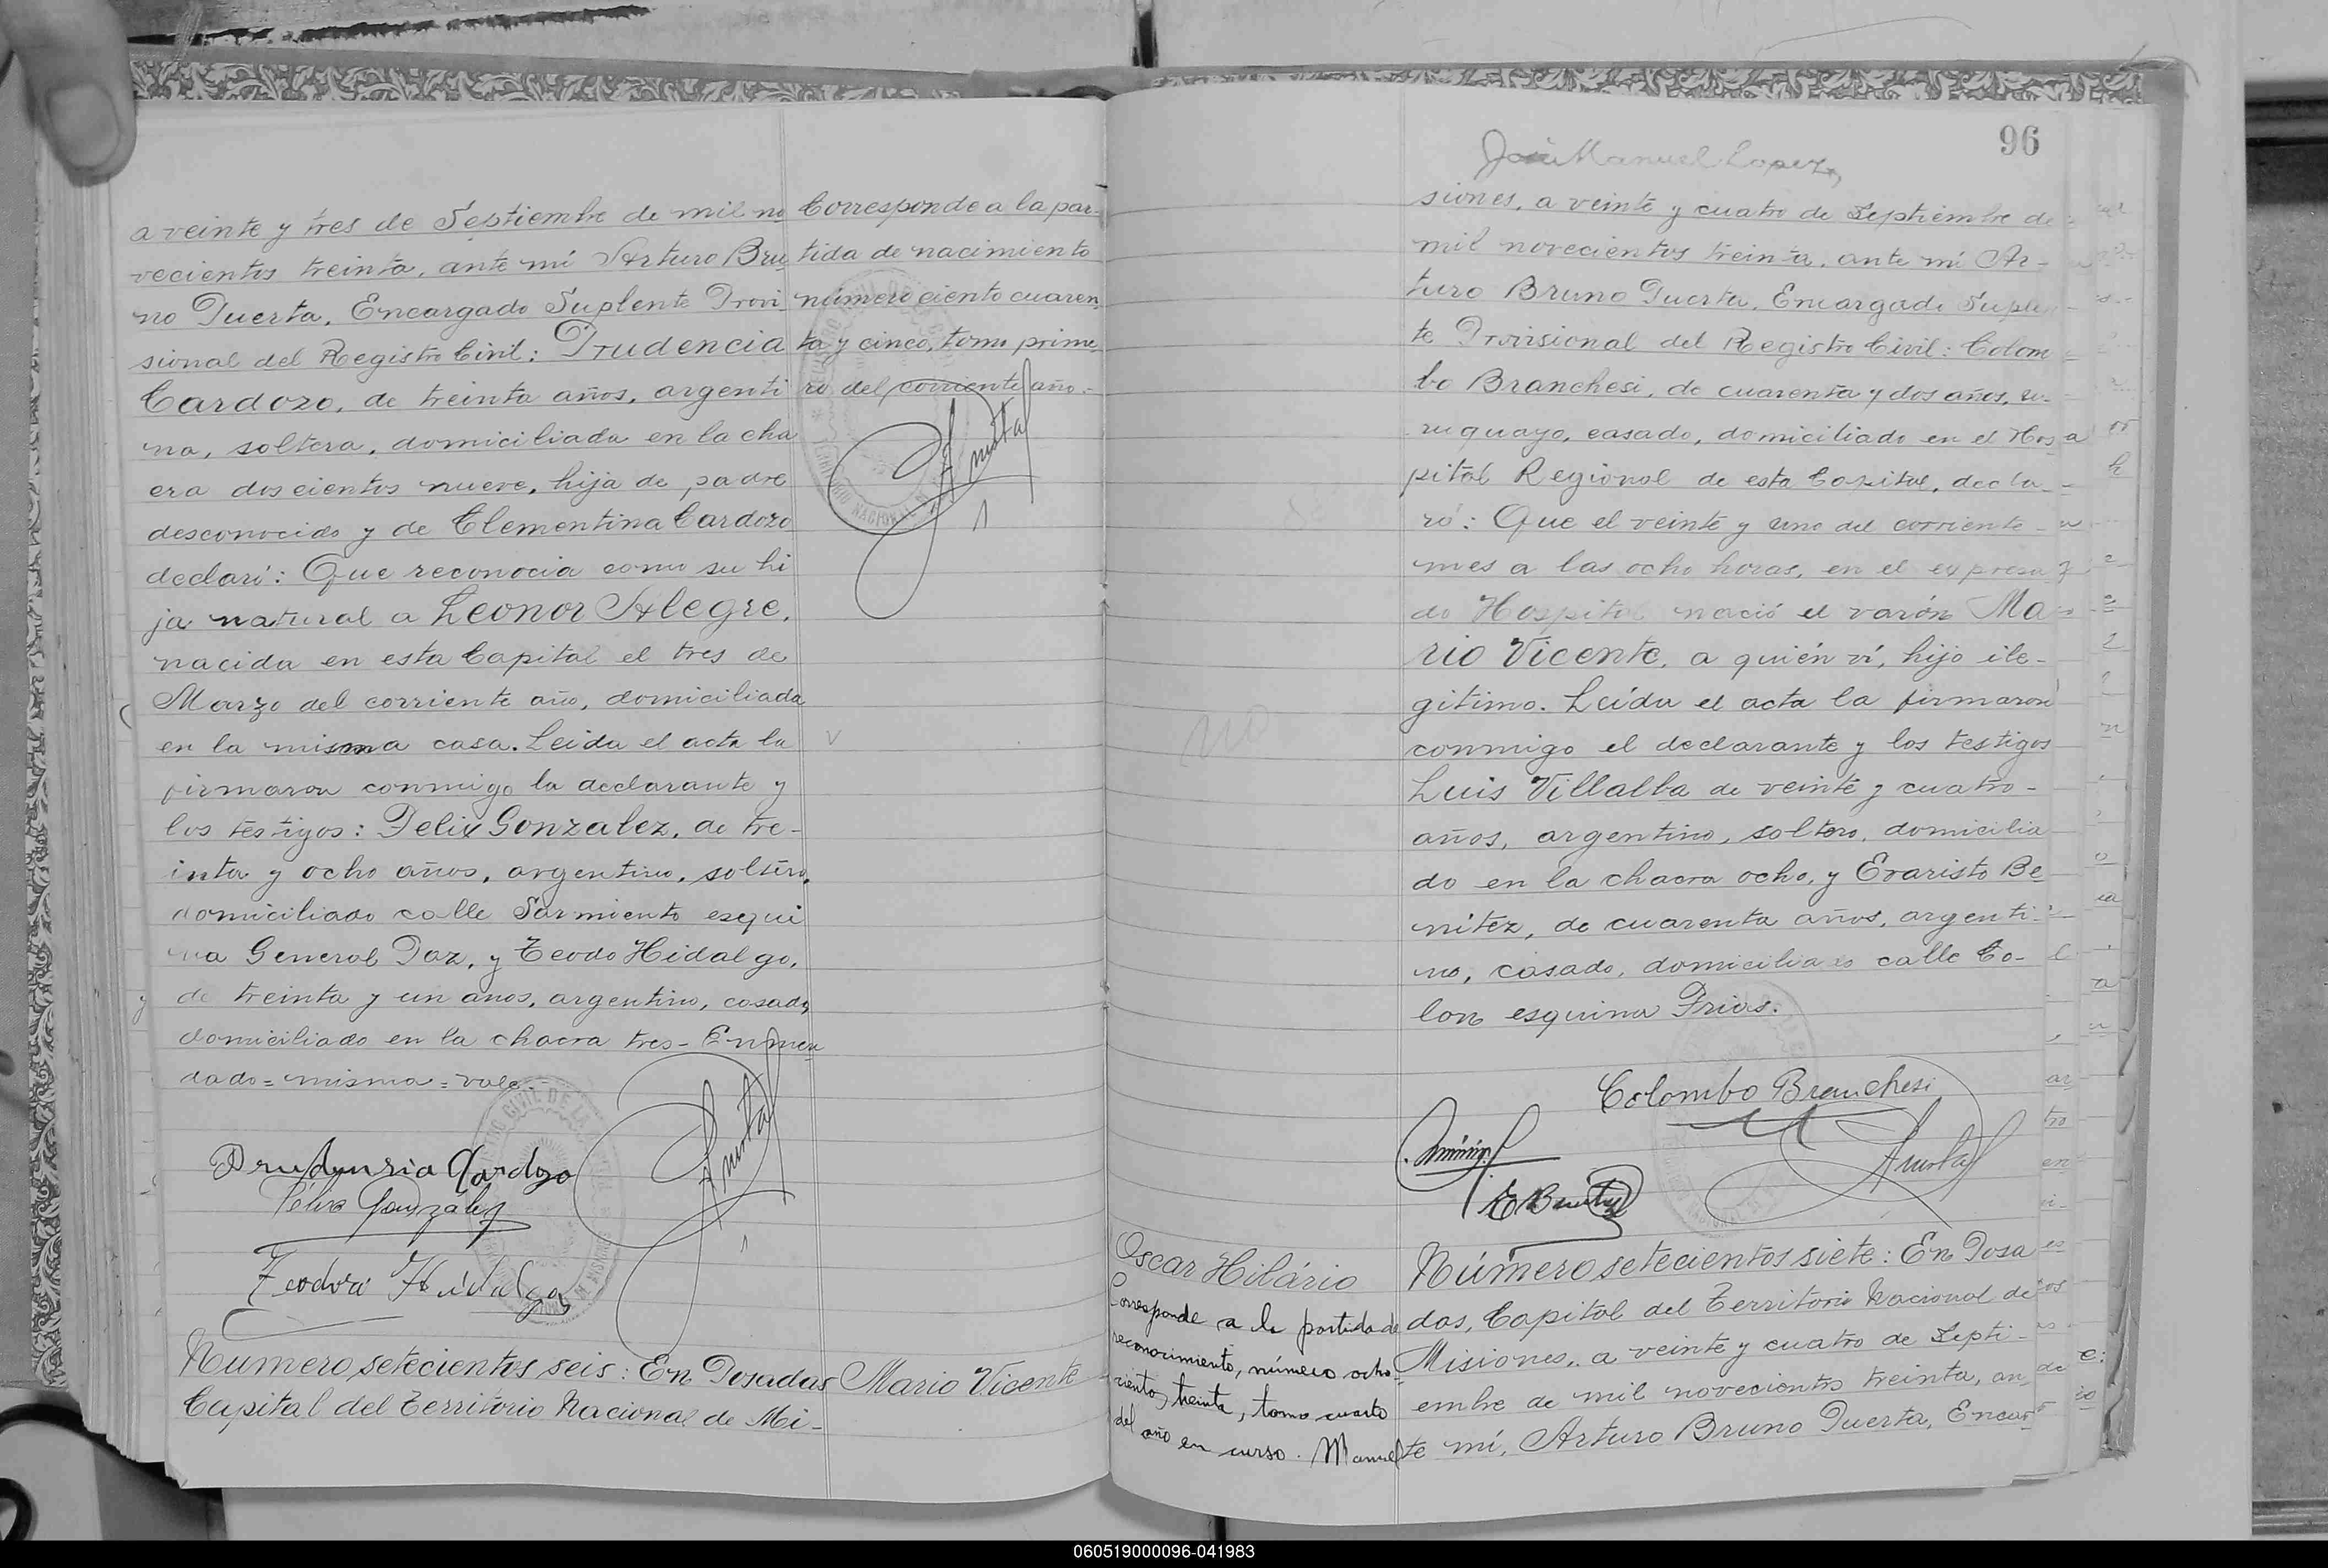 a veinte y tres de Septiembre de mil no
vecientos treinta, ante mí Arturo Bru
no Puerta, Encargado Suplente Provi
sional del Registro Civil: Prudencia
Cardozo, de treinta años, argenti
na, soltera, domiciliada en la cha
cra doscientos nueve, hija de padre
desconocido y de Clementina Cardozo
declaró: Que reconocia como su hi
ja natural a Leonor Alegre,
nacida en esta Capital el tres de
Marzo del corriente año, domiciliada
en la misma casa. Leida el acta la
firmaron conmigo la declarante y
los testigos: Felix Gonzalez, de tre-
inta y ocho años, argentino, soltero,
domiciliado calle Sarmiento esqui
na General Paz, y Teodo Hidalgo,
de treinta y un anos, argentino, casado,
domiciliado en la chacra tres- Enmen
dado= misma= vale.-
Prudencia Cardozo
Félix González
Teodoro Hidalgo
Corresponde a la par-
tida de nacimiento
número ciento cuaren
ta y cinco, tomo prime
ro del corriente año.-
Número setecientos seis: En Posadas
Capital del Territorio Nacional de Mi-
Mario Vicente
96
José Manuel Lopez,
siones, a veinte y cuatro de Septiembre de
mil novecientos treinta, ante mí Ar-
turo Bruno Puerta, Encargado Suplen
te Provisional del Registro Civil: Colom
bo Branchesi, de cuarenta y dos años, u-
ruguayo, casado, domiciliado en el Hos
pital Regional de esta Capital, decla-
ró: Que el veinte y uno del corriente
mes a las ocho horas, en el expresa
do Hospital nació el varón Ma
rio Vicente, a quién ví, hijo ile-
gitimo. Leída el acta la firmaron
conmigo el declarante y los testigos
Luis Villalba de veinte y cuatro-
años, argentino, soltero, domicilia
do en la chacra ocho, y Evaristo Be
nítez, de cuarenta años, argenti-
no, casado, domiciliado calle Co-
lon esquina Frias.
no
Colombo Branchesi
E Benitez
Oscar Hilário
Corresponde a la partida de
reconocimiento, número ocho-
ciento, treinta, tomo cuarto
del año en curso. Manuel
Número setecientos siete: En Posa
das, Capital del Territorio Nacional de
Misiones, a veinte y cuatro de Septi-
embre de mil novecientos treinta, an
te mí, Arturo Bruno Puerta, Encar
060519000096-041983